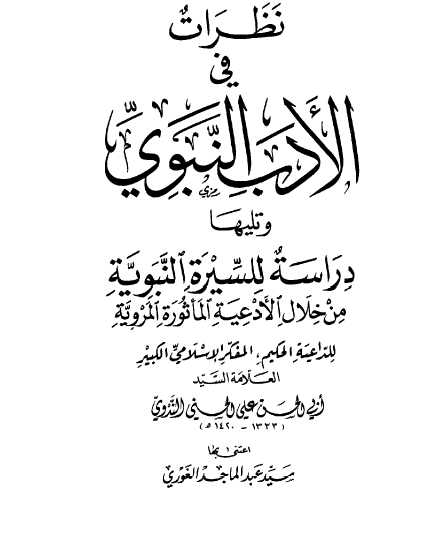 نَظَرَاتٌ
في
الأَدَبِ النَّبَوِيِّ
وتليها
دِرَاسَةٌ لِلسِّيْرَةِ النَّبَوِيَّةِ
مِنْ خِلَالِ الأَدْعِيَةِ المَأْثُورَةِ المَرْوِيَّةِ
للدّاعيَة الحكيم، المفكّر الإسْلاميّ الكبيْر
العَلاّمَة السَّيّد
أبي الحسَن علي الحسَني النَّدْويّ
(١٣٣٣ - ١٤٢٠ هـ)
اعتنى بها
سَيِّد عَبد الماجد الغَوري